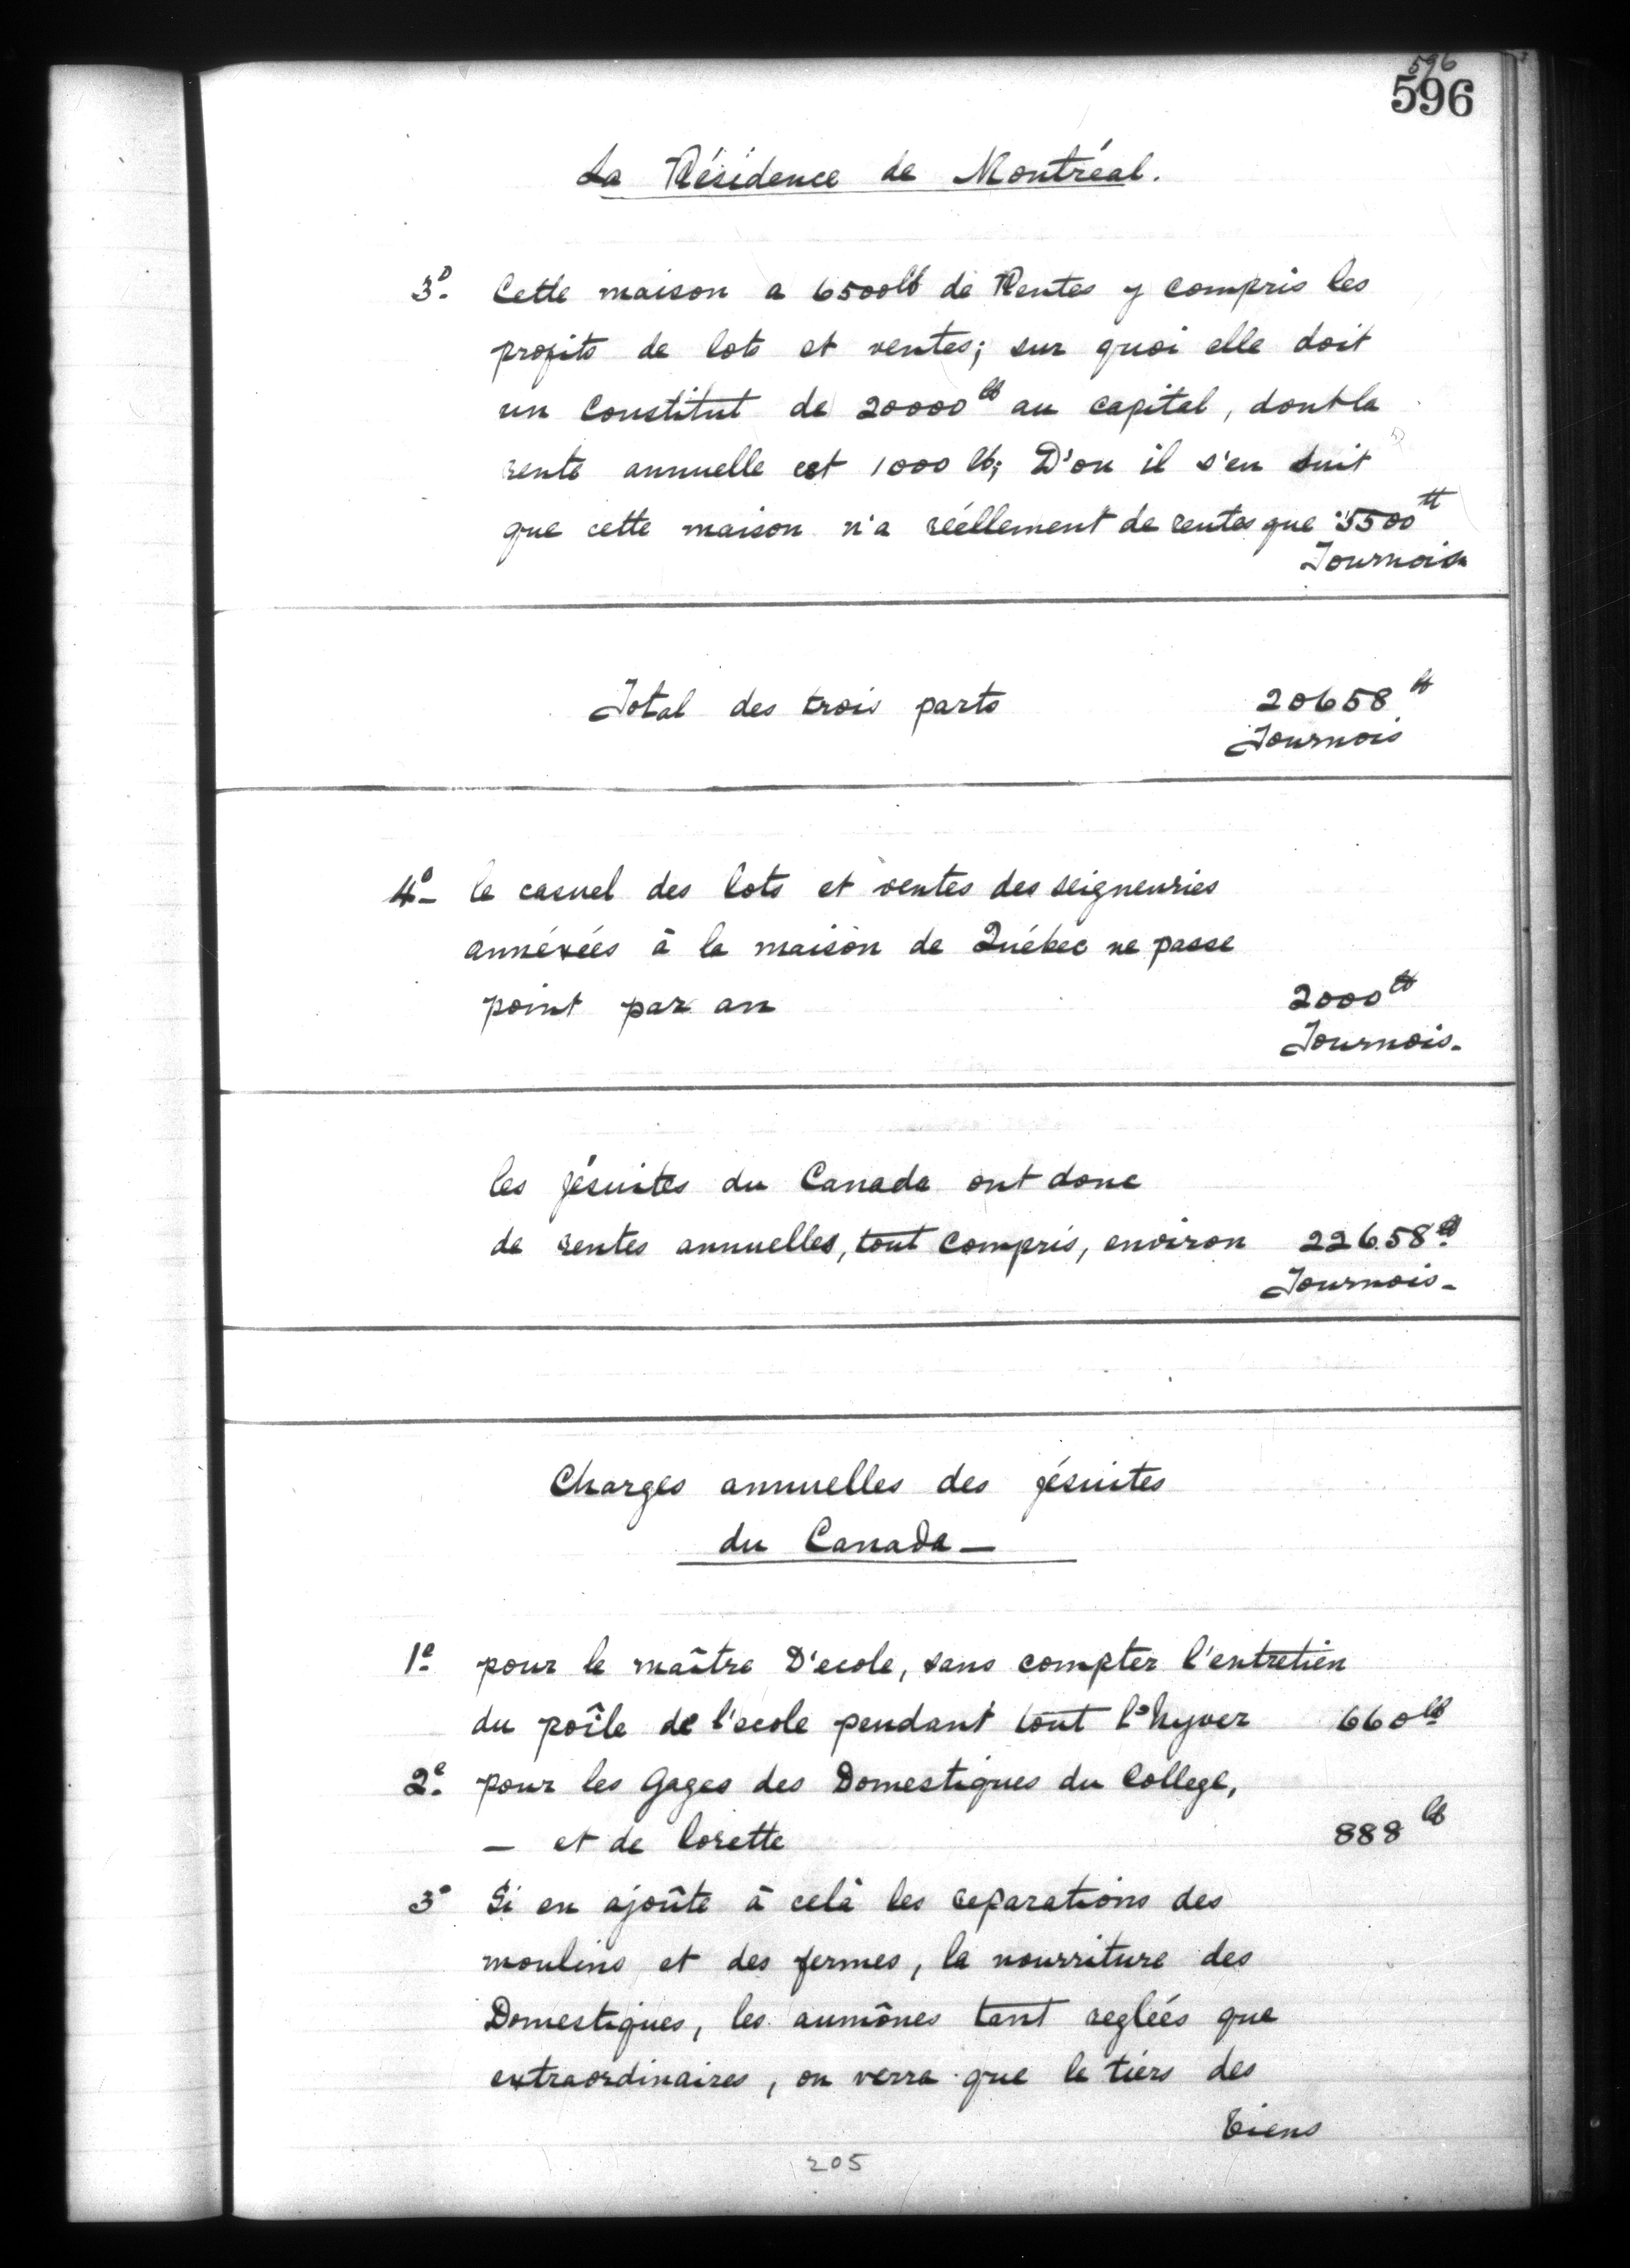 596
596
La Résidence de Montréal.
3º. Cette maison a 6500lb de Rentes y compris les
profits de lots et ventes; sur quoi elle doit
un Constitut de 20000lb au capital, dont la
rente annuelle est 1000 lb; D'ou il s'en suit
que cette maison n'a réellement de rentes que 5500tt
Tournois
Total des trois parts 20658tt
Tournois
4º_ le casuel des lots et ventes des seigneuries
annéxées à la maison de Québec ne passe
point par an 2000tt
Tournois.
les jésuites du Canada ont donc
de rentes annuelles, tout compris, environ 22658tt
Tournois_
Charges annuelles des jésuites
du Canada_
1º. pour le maître D'ecole, sans compter l'entretien
du poîle de l'ecole pendant tout l'hyver 660lb
2º. pour les Gages des Domestiques du College,
_ et de lorette 888lb
3º Si on ajoûte à celà les reparations des
moulins et des fermes, la nourriture des
Domestiques, les aumônes tant regléés que
extraordinaires, on verra que le tiers des
biens
205